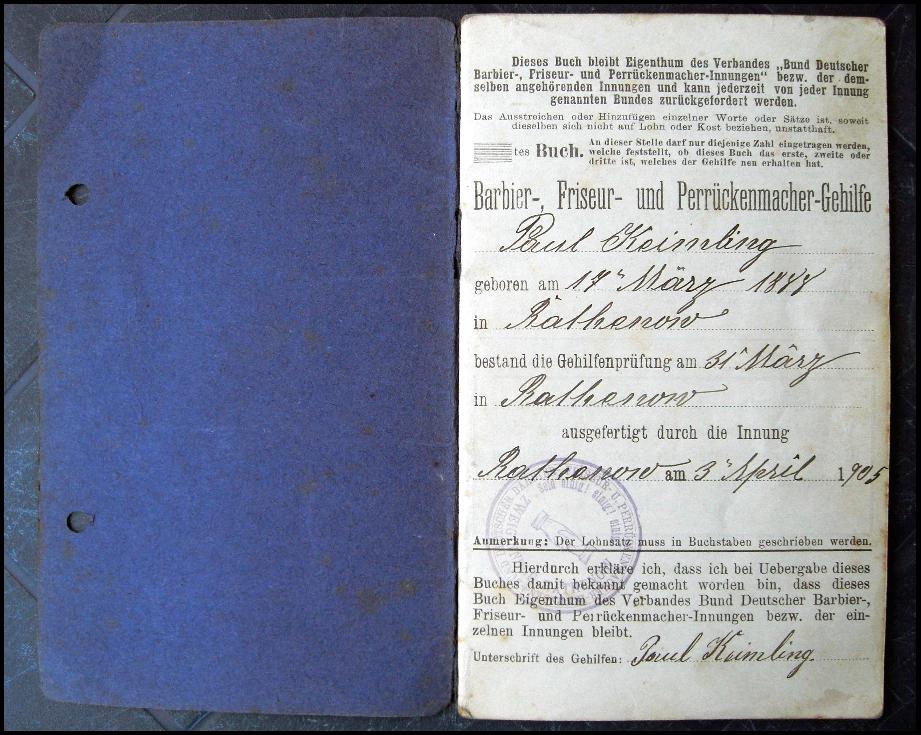 Dieses Buch bleibt Eigenthum des Verbandes „Bund Deutscher
Barbier-, Friseur- und Perrückenmacher-Innungen“ bezw. der dem-
selben angehörenden Innungen und kann jederzeit von jeder Innung
genannten Bundes zurückgefordert werden.
Das Ausstreichen oder Hinzufügen einzelner Worte oder Sätze ist, soweit
dieselben sich nicht auf Lohn oder Kost beziehen, unstatthaft.
tes Buch. An dieser Stelle darf nur diejenige Zahl eingetragen werden,
welche feststellt, ob dieses Buch das erste, zweite oder
dritte ist, welches der Gehilfe neu erhalten hat.
Barbier-, Friseur- und Perrückenmacher-Gehilfe
Paul Keimling
geboren am 17ⁿ März 1888
in Rathenow
bestand die Gehilfenprüfung am 31ⁿ März
in Rathenow
ausgefertigt durch die Innung
Rathenow am 3ⁿ April 1905
einig! einig! einig!
Anmerkung: Der Lohnsatz muss in Buchstaben geschrieben werden.
Hierdurch erkläre ich, dass ich bei Uebergabe dieses
Buches damit bekannt gemacht worden bin, dass dieses
Buch Eigenthum des Verbandes Bund Deutscher Barbier-,
Friseur- und Perrückenmacher-Innungen bezw. der ein-
zelnen Innungen bleibt.
Unterschrift des Gehilfen: Paul Keimling.